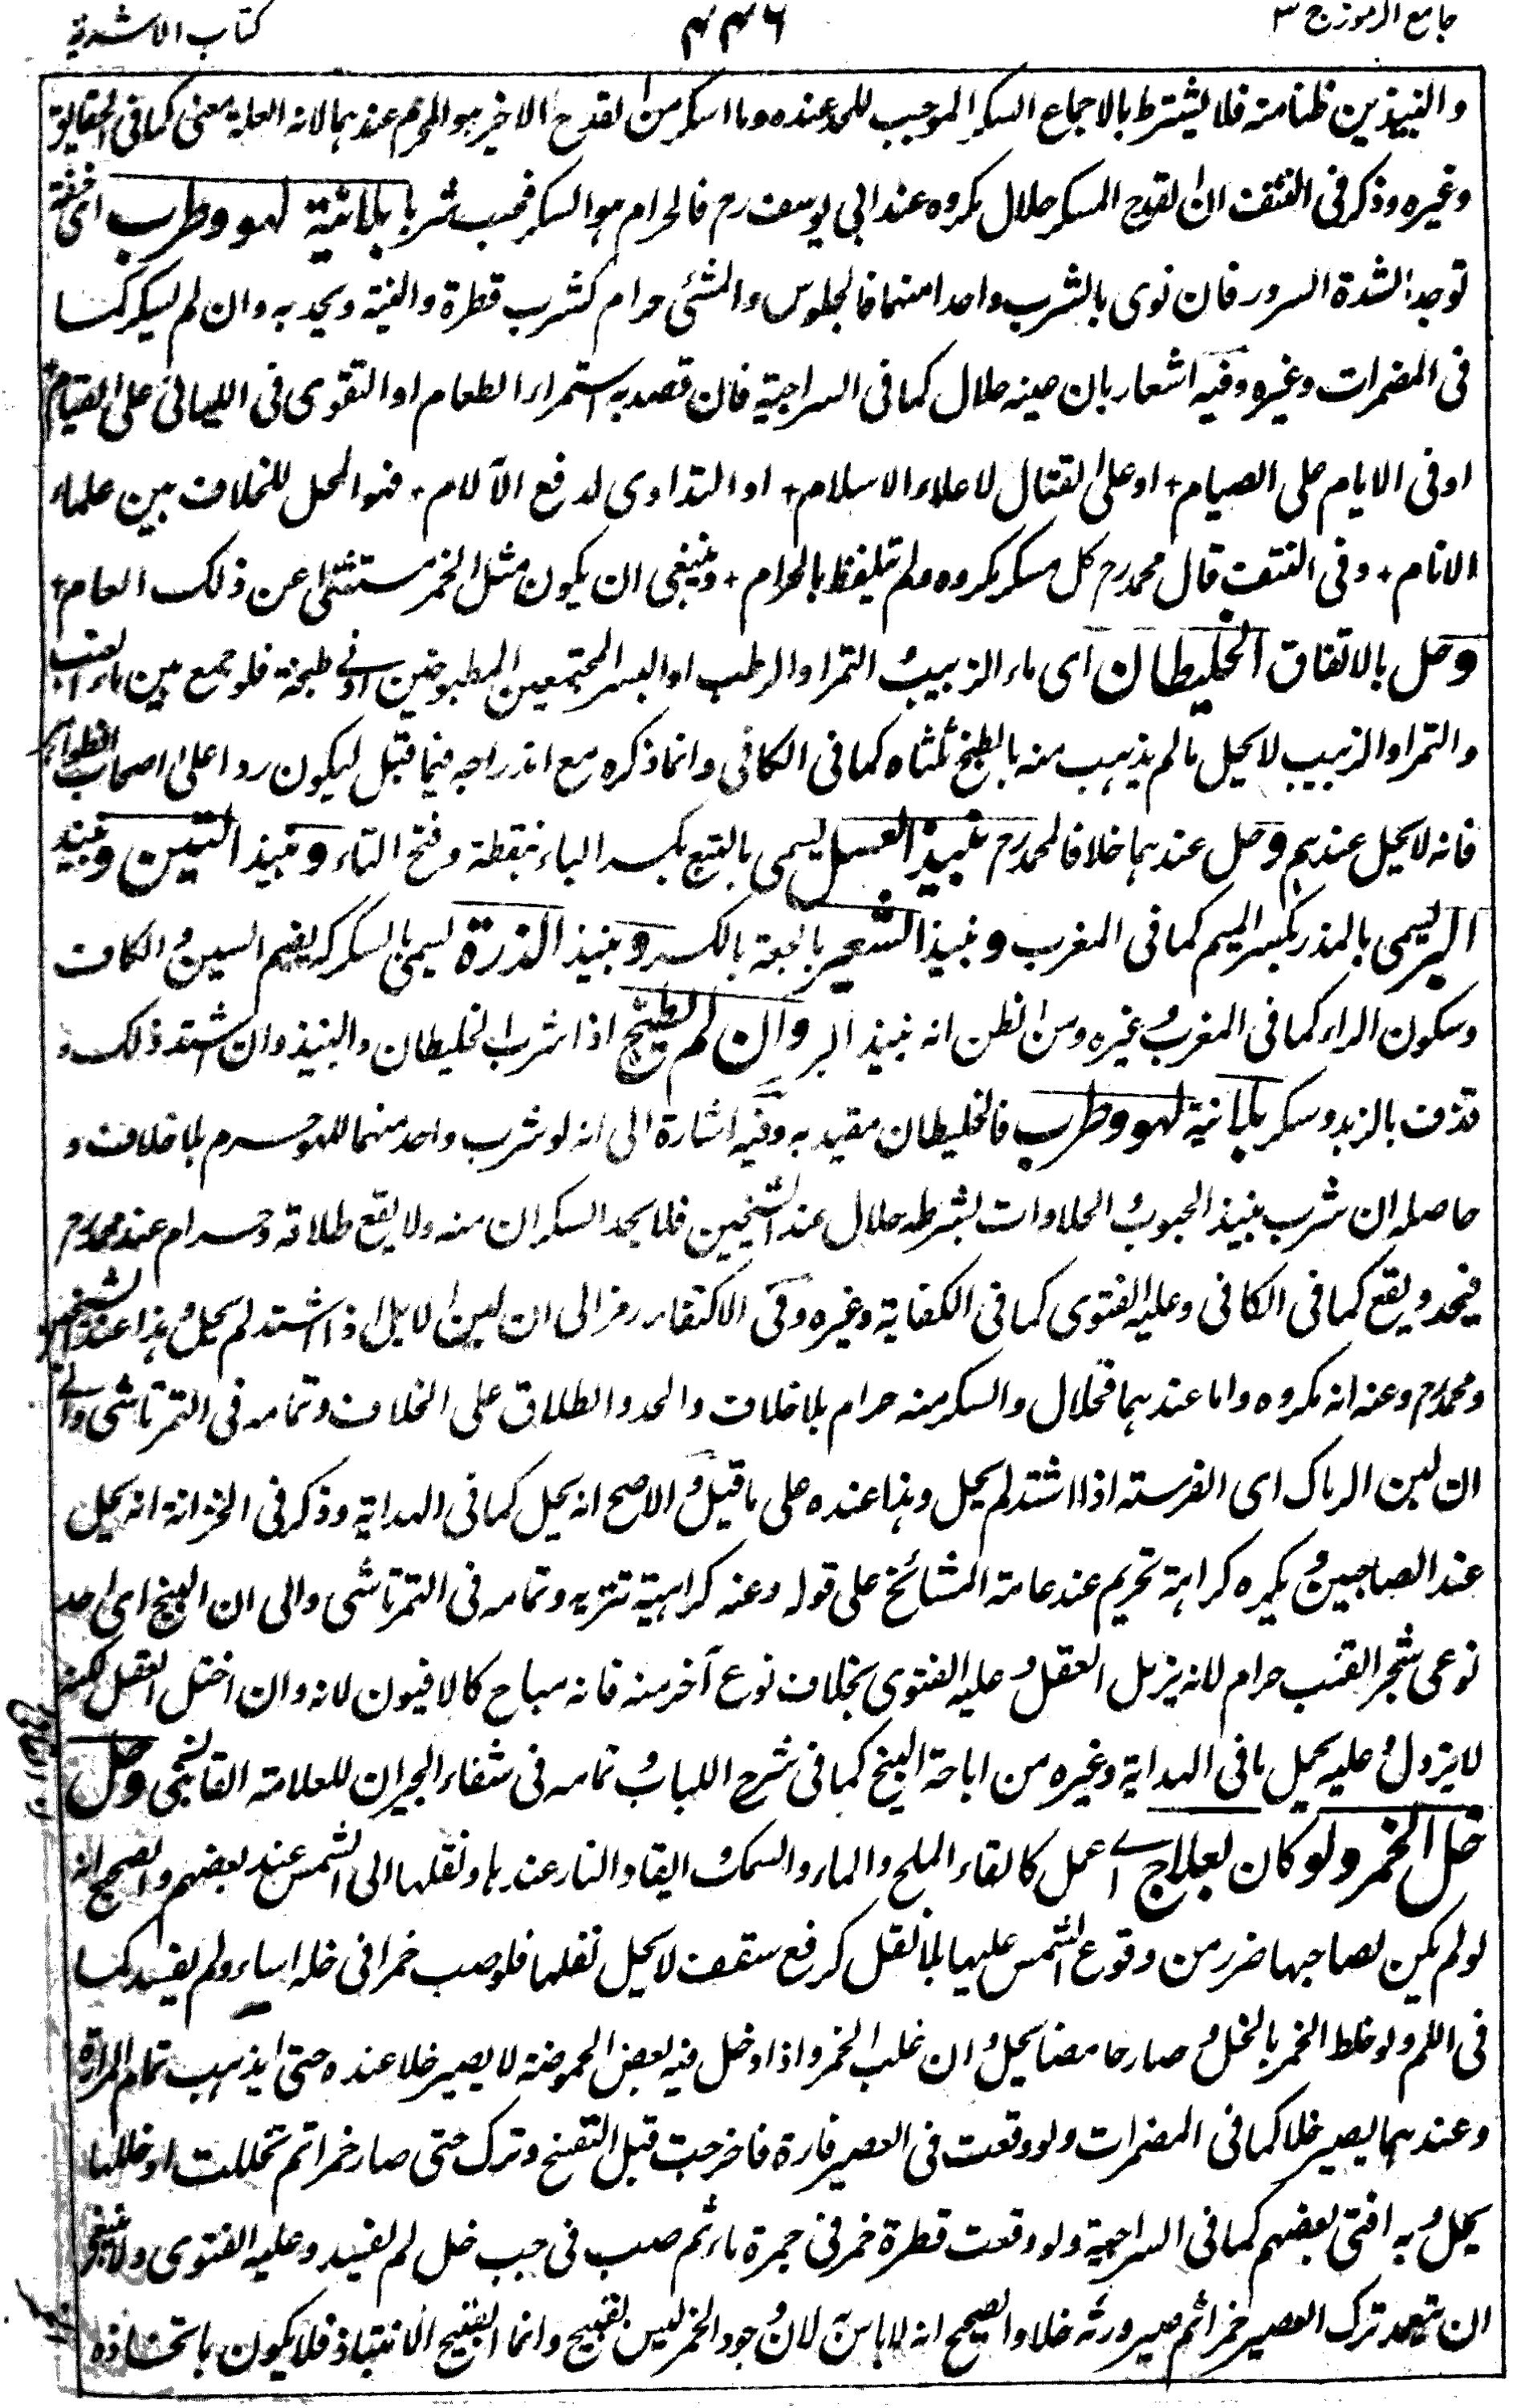 جامع الرموز ج ٣
٤٤٦
كتاب الاشربة
والنبيذين ظنا منه فلا يشترط بالاجماع السكر الموجب للحد عنده وما اسكر من القدح الاخير هو المحرم عندهما لانه العلة معنى كما فى الحقايق
وغيره وذكر فى النتف ان القدح المسكر حلال مكروه عند ابى يوسف رح فالحرام هو السكر فحسب شربا بلا نية لهو وطرب اى خفة
توجد لشدة السرور فان نوى بالشرب واحدا منهما فالجلوس والمشئى حرام كشرب قطرة والنية ويحد به وان لم يسكر كما
فى المضمرات وغيره وفيه اشعار بان حينه حلال كما فى السراجية فان قصد به استمراء الطعام او التقوى فى الليالى على القيام
او فى الايام على الصيام + او على القتال لاعلاء الاسلام + او التداوى لدفع الآلام + فهو المحل للخلاف بين علماء
الانام + وفى النتف قال محمد رح كل مسكر مكروه ولم يتلفظ بالحرام + وينبغى ان يكون مثل الخمر مستثنى عن ذلك العام +
وحل بالاتفاق الخليطان اى ماء الزبيب و التمر او الرطب او البسر المجتمعين المطبوخين ادنى طبخة فلو جمع بين ماء العنب
والتمر او الزبيب لا يحل ما لم يذهب منه بالطبخ ثلثاه كما فى الكافى وانما ذكره مع اندراجه فيما قبل ليكون ردا على اصحاب الظواهر
فانه لا يحل عندهم وحل عندهما خلافا لمحمد رح نبيذ العسل يسمى بالبتع بكسر الباء بنقطة وفتح التاء ونبيذ التين ونبيذ
البر يسمى بالمذر بكسر الميم كما فى المغرب ونبيذ الشعير بالجعة بالكسر ونبيذ الذرة يسمى بالسكركه بضم السين و الكاف
وسكون الراء كما فى المغرب و غيره ومن الظن انه نبيذ البر وان لم يطبخ اذا شرب الخليطان والنبيذ وان اشتد ذلك و
قذف بالزبد وسكر بلا نية لهو وطرب فالخليطان مقيد به وفيه اشارة الى انه لو شرب واحد منهما للهو حرم بلا خلاف و
حاصله ان شرب نبيذ الحبوب و الحلاوات بشرطه حلال عند الشيخين فلا يحد السكران منه ولا يقع طلاقه وحرام عند محمد رح
فيحد ويقع كما فى الكافى وعليه الفتوى كما فى الكفاية وغيره وفى الاكتفاء رمز الى ان لبن الابل اذا اشتد لم يحل و هذا عند الشيخين
ومحمد رح وعنه انه مكروه واما عندهما فحلال والسكر منه حرام بلا خلاف والحد والطلاق على الخلاف وتمامه فى التمرتاشى والى
ان لبن الرماك اى الفرسته اذا اشتد لم يحل وهذا عنده على ما قيل و الاصح انه يحل كما فى الهداية وذكر فى الخزانة انه يحل
عند الصاحبين و يكره كراهة تحريم عند عامة المشائخ على قوله وعنه كراهية تنزيه وتمامه فى التمرتاشى والى ان البنج اى احد
نوعى شجر القنب حرام لانه يزيل العقل و عليه الفتوى بخلاف نوع آخر منه فانه مباح كالافيون لانه وان اختل العقل لكنه
لا يزول و عليه يحمل ما فى الهداية وغيره من اباحة البنج كما فى شرح اللباب و تمامه فى شفاء الجيران للعلامة القابجى وحل
خل الخمر ولو كان بعلاج اى عمل كالقاء الملح والماء والسمك و ايقاد النار عندها ونقلها الى الشمس عند بعضهم والصحيح انه
لو لم يكن لصاحبها ضرر من وقوع الشمس عليها بلا نقل كرفع سقف لا يحل نقلها فلو صب خمرا فى خله اساء ولم يفسد كما
فى اللم ولو خلط الخمر بالخل و صار حامضا يحل و ان غلب الخمر واذا دخل فيه بعض الحموضة لا يصير خلا عنده حتى يذهب تمام المرارة
وعندهما يصير خلا كما فى المضمرات ولو وقعت فى العصير فارة فاخرجت قبل التفسخ وترك حتى صار خمرا ثم تخللت او خللها
يحل و به افتى بعضهم كما فى السراجية ولو وقعت قطرة خمر فى جرة ماء ثم صب فى جب خل لم يفسد وعليه الفتوى ولا ينبغى
ان يتعمد ترك العصير خمرا ثم صيرورته خلا والصحيح انه لا باس به لان وجود الخمر ليس بقبيح وانما القبيح الانتباذ فلا يكون باتخاذه